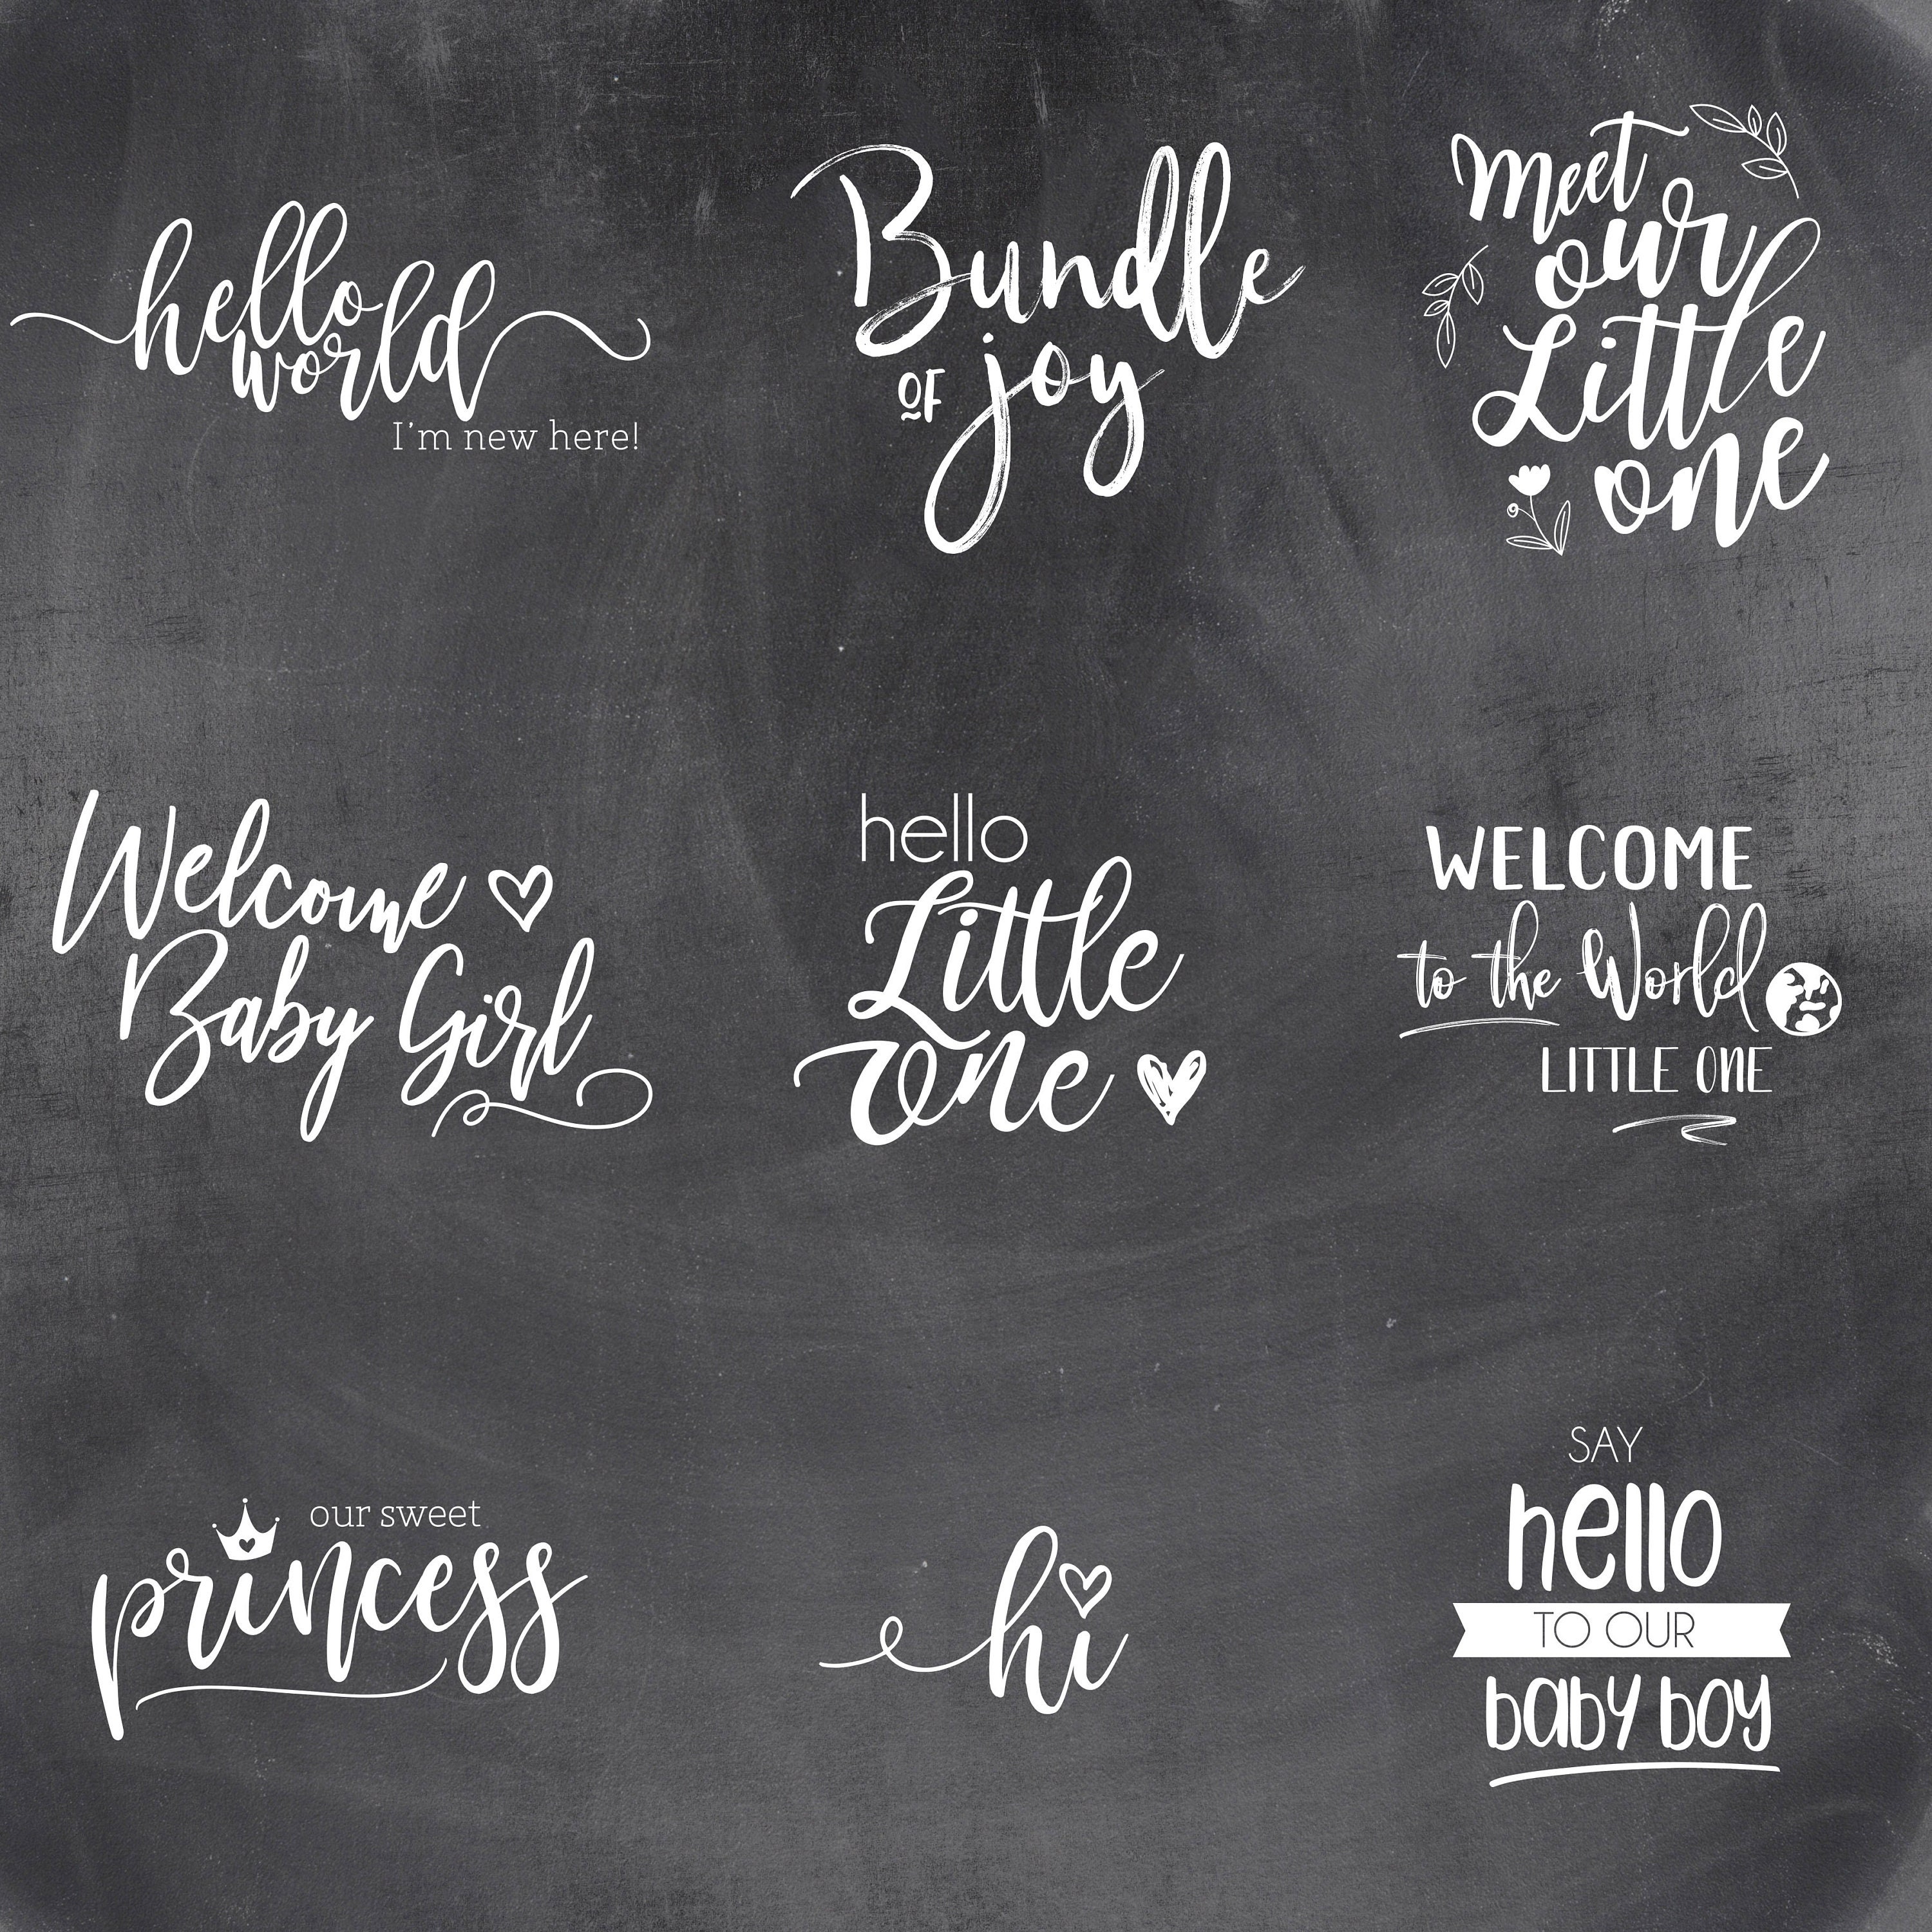 hello
world
I'm new here!
Bundle
OF joy
Meet
our
Little
one
Welcome
Baby Girl
hello
Little
one
WELCOME
to the World
LITTLE ONE
our sweet
princess
hi
SAY
hello
TO OUR
baby boy